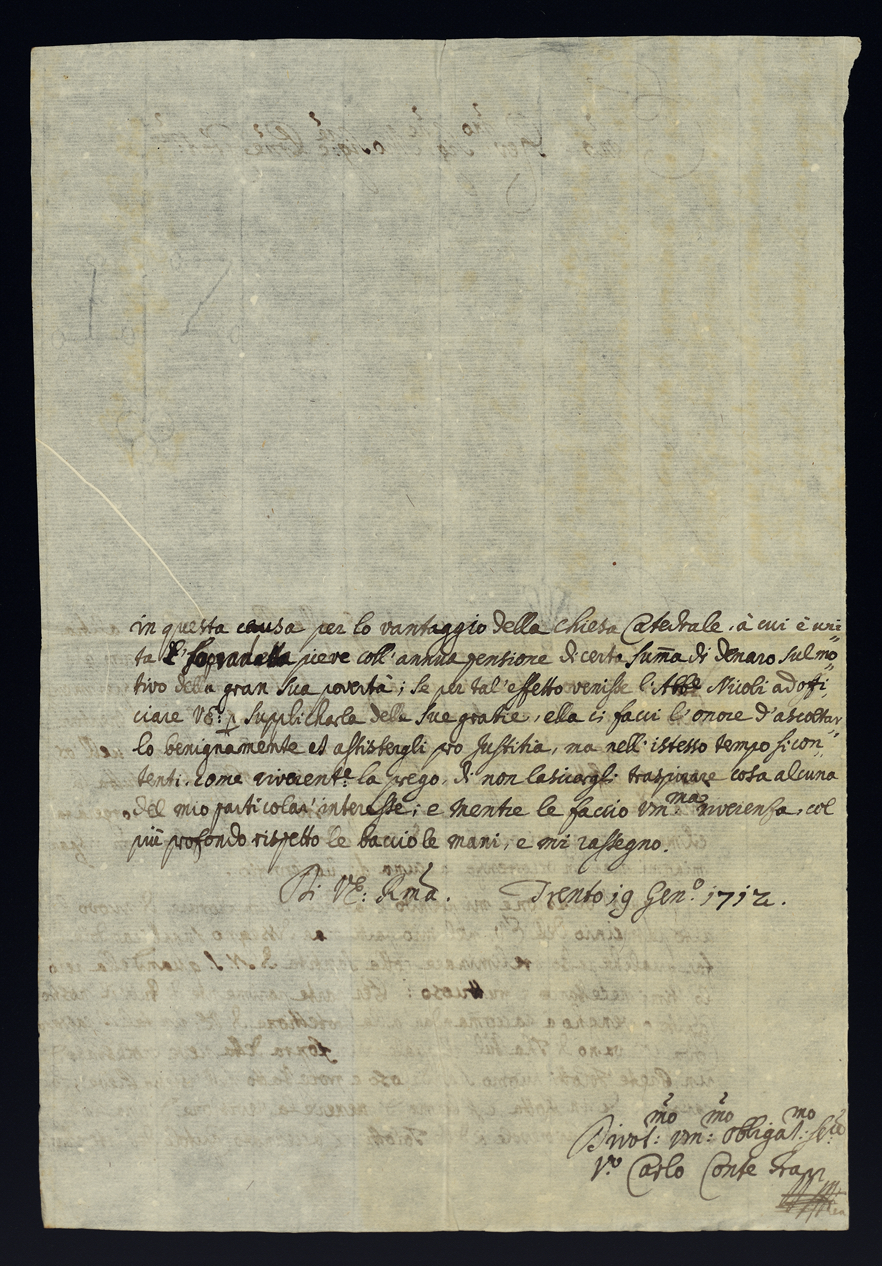 in questa causa per lo vantaggio della chiesa Catedrale, à cui è uni=
ta pieve coll'annua pensione di certa sum̃a di denaro sul mo=
tivo della gran sua povertà; se per tal'effetto venisse l'Abbe Nicolì ad offi,
ciare VE: p supplicharla delle sue gratie, ella ci facci l'onore d'ascoltar,
lo benignamente et assistergli pro Justitia, ma nell'istesso tempo si con,
tenti, come riverent.e la prego, di non lasciargli traspirare cosa alcuna
del mio particolar' interesse; e mentre le faccio um.ma riverensa, col
più profondo rispetto le baccio le mani, e mi rassegno.
Di VE: Rm̃a. Trento 19 Gen.o 1712.
Divot:mo um:mo obligat:mo
Carlo Conte